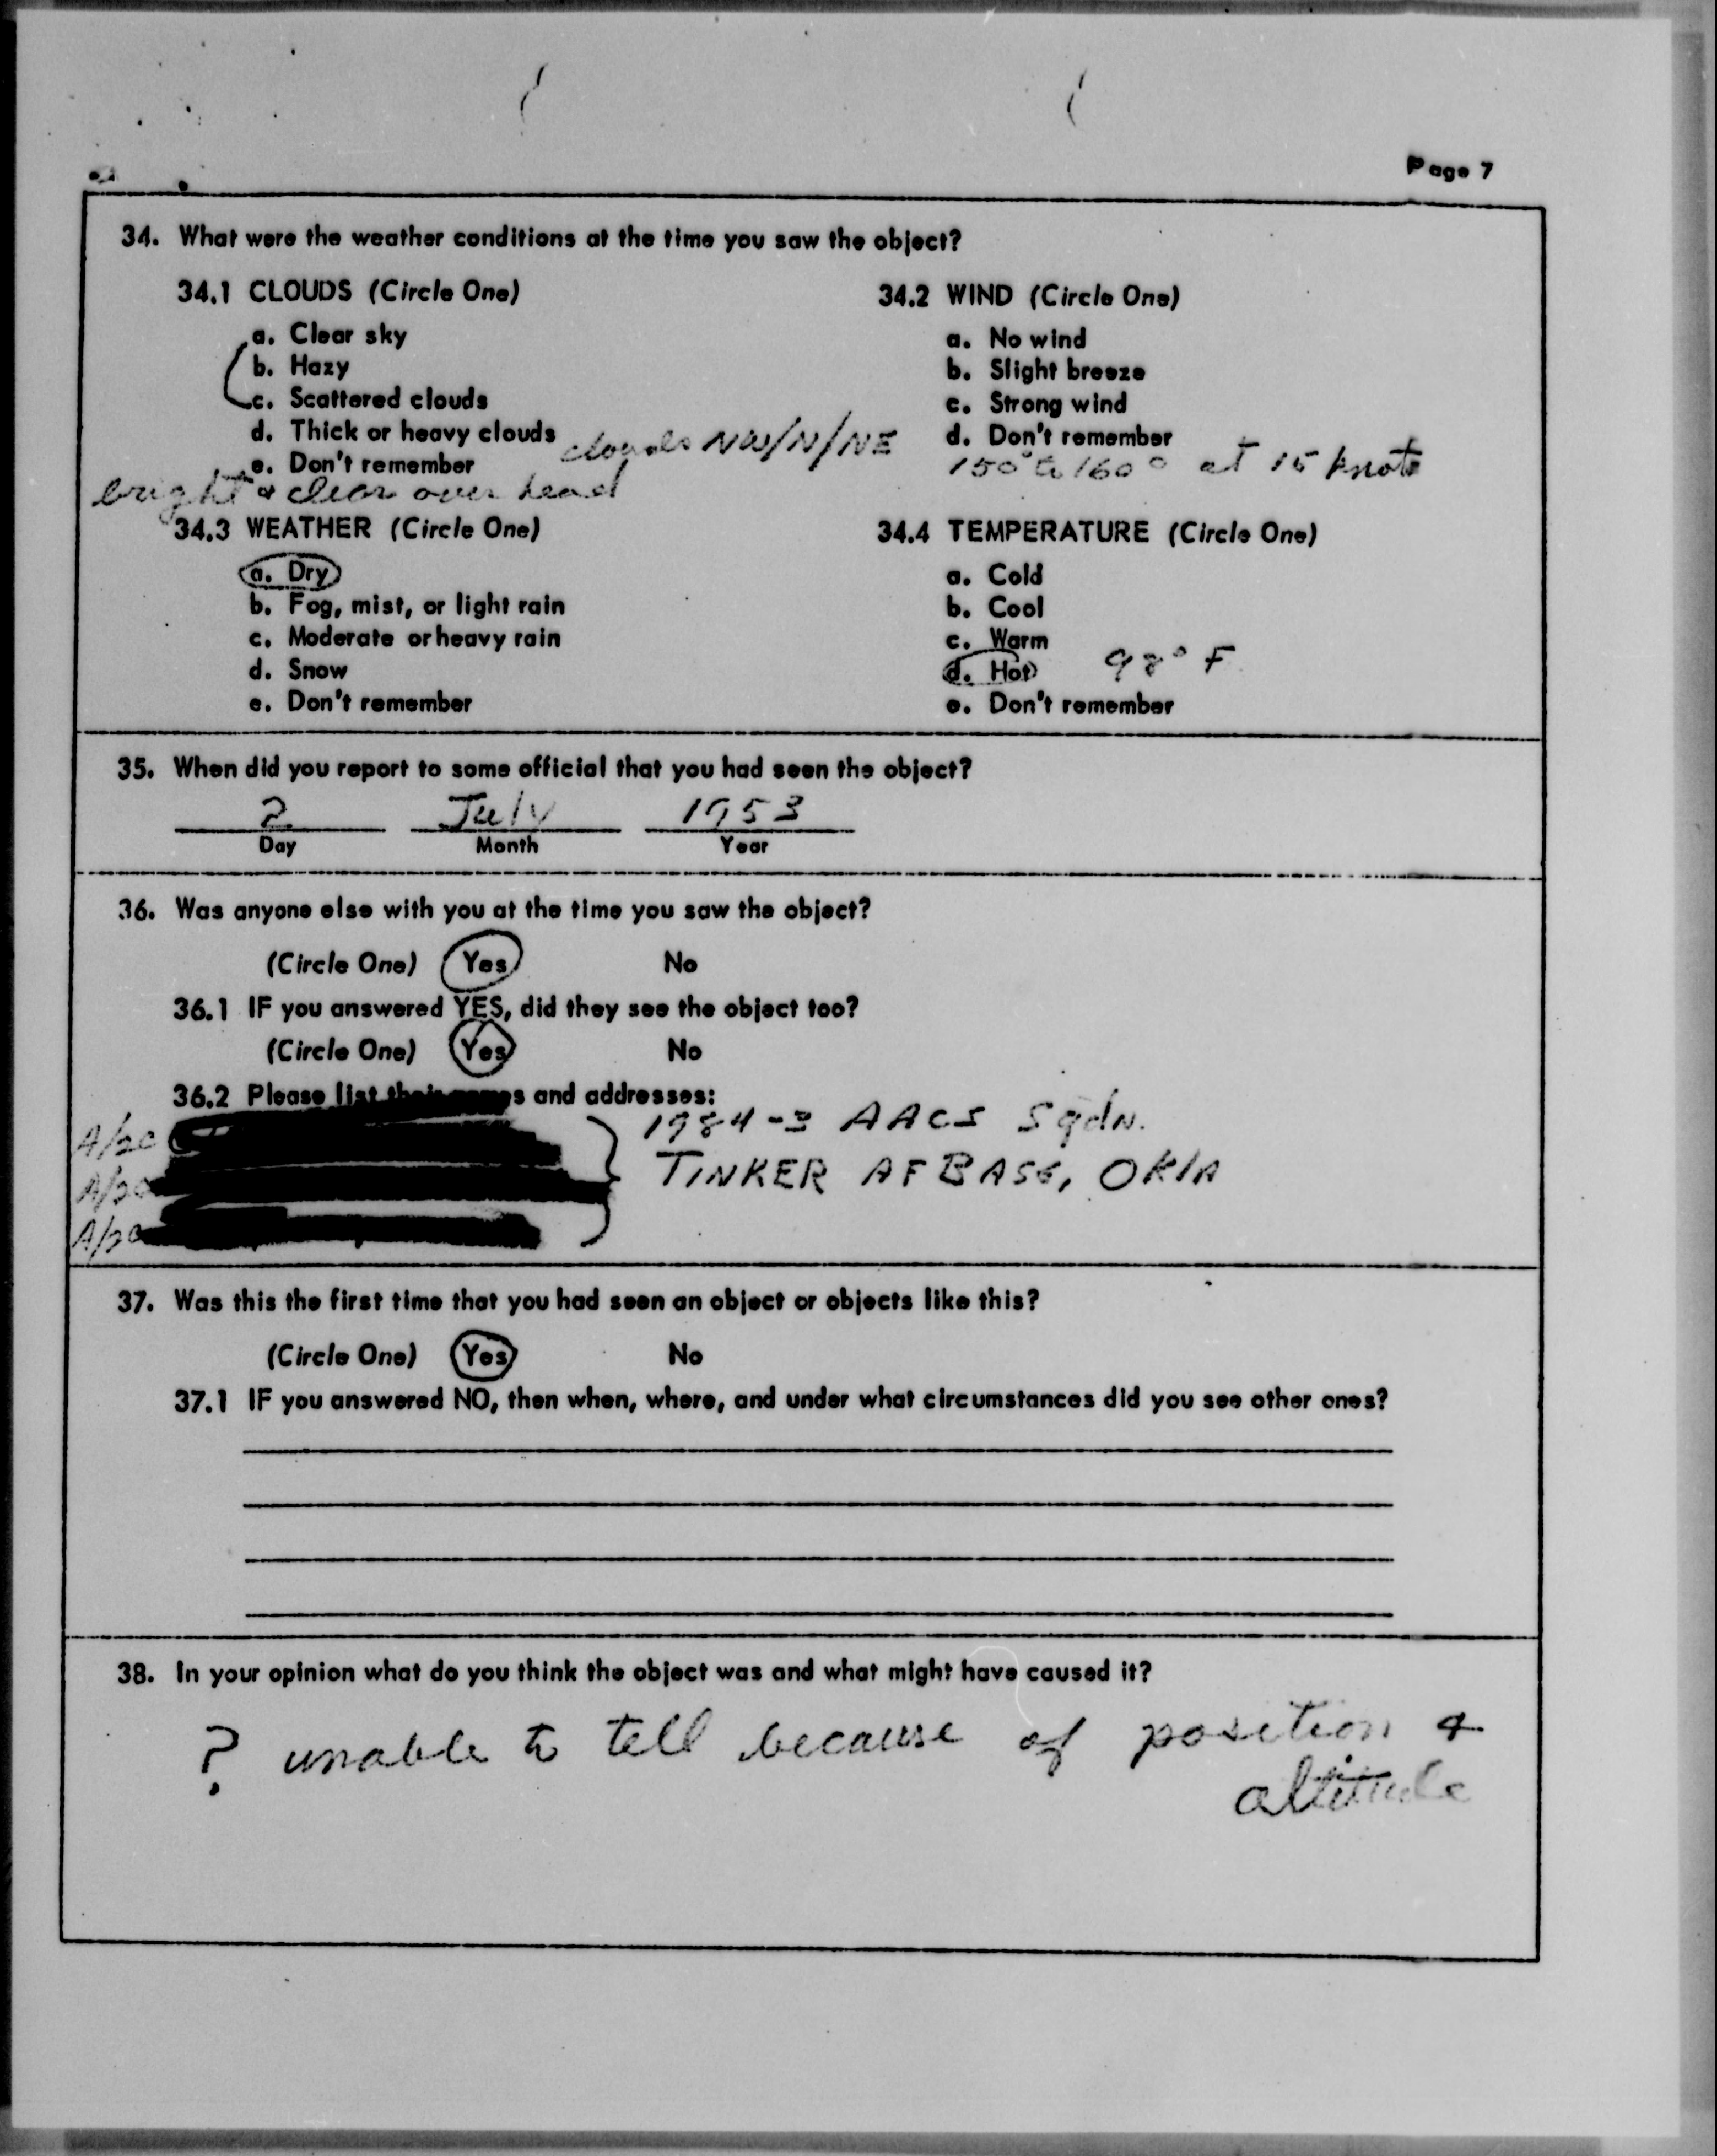 Page 7
34. What were the weather conditions at the time you saw the object?
34.1 CLOUDS (Circle One)
a. Clear sky
b. Hazy
c. Scattered clouds
d. Thick or heavy clouds
clouds NW/N/NE
e. Don't remember
bright & clear over head
34.2 WIND (Circle One)
a. No wind
b. Slight breeze
c. Strong wind
d. Don't remember
150° to 160° at 15 knots
34.3 WEATHER (Circle One)
a. Dry
b. Fog, mist, or light rain
c. Moderate or heavy rain
d. Snow
e. Don't remember
34.4 TEMPERATURE (Circle One)
a. Cold
b. Cool
c. Warm
d. Hot 98° F
e. Don't remember
35. When did you report to some official that you had seen the object?
2 July 1953
Day Month Year
36. Was anyone else with you at the time you saw the object?
(Circle One) Yes No
36.1 IF you answered YES, did they see the object too?
(Circle One) Yes No
36.2 Please list their names and addresses:
A/2C
A/2C
A/2C
1984-3 AACS Sqdn.
TINKER AF BASE, OKLA
37. Was this the first time that you had seen an object or objects like this?
(Circle One) Yes No
37.1 IF you answered NO, then when, where, and under what circumstances did you see other ones?
38. In your opinion what do you think the object was and what might have caused it?
? unable to tell because of position &
altitude